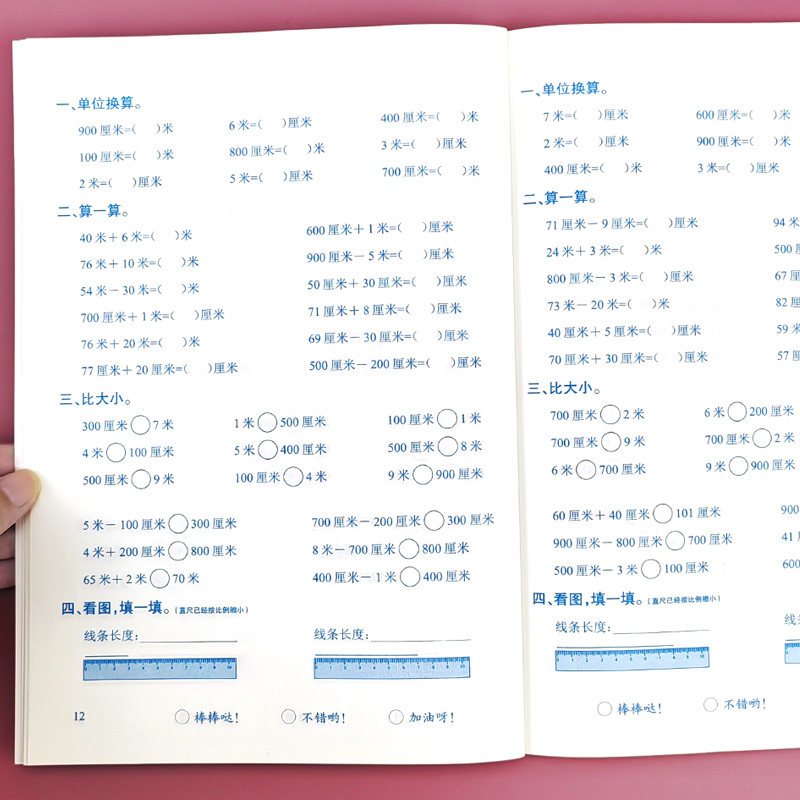 一、单位换算。
900 厘米=( )米 6 米=( )厘米 400 厘米=( )米
100 厘米=( )米 800 厘米=( )米 3 米=( )厘米
2 米=( )厘米 5 米=( )厘米 700 厘米=( )米
二、算一算。
40 米＋6 米=( )米 600 厘米＋1 米=( )厘米
76 米＋10 米=( )米 900 厘米－5 米=( )厘米
54 米－30 米=( )米 50 厘米＋30 厘米=( )厘米
700 厘米＋1 米=( )厘米 71 厘米＋8 厘米=( )厘米
76 米＋20 米=( )米 69 厘米－30 厘米=( )厘米
77 厘米＋20 厘米=( )厘米 500 厘米－200 厘米=( )厘米
三、比大小。
300 厘米○7 米 1 米○500 厘米 100 厘米○1 米
4 米○100 厘米 5 米○400 厘米 500 厘米○8 米
500 厘米○9 米 100 厘米○4 米 9 米○900 厘米
5 米－100 厘米○300 厘米 700 厘米－200 厘米○300 厘米
4 米＋200 厘米○800 厘米 8 米－700 厘米○800 厘米
65 米＋2 米○70 米 400 厘米－1 米○400 厘米
四、看图,填一填。(直尺已经按比例缩小)
线条长度:________ 线条长度:________
0 1 2 3 4 5 6 7 8 9 10 0 1 2 3 4 5 6 7 8 9 10
12 ○ 棒棒哒! ○ 不错哟! ○ 加油呀!
一、单位换算。
7 米=( )厘米 600 厘米=(
2 米=( )厘米 900 厘米=(
400 厘米=( )米 3 米=(
二、算一算。
71 厘米－9 厘米=( )厘米 94 米
24 米＋3 米=( )米 500
800 厘米－3 米=( )厘米 67
73 米－20 米=( )米 82
40 厘米＋5 厘米=( )厘米 59
70 厘米＋30 厘米=( )厘米 57
三、比大小。
700 厘米○2 米 6 米○200 厘米
700 厘米○9 米 700 厘米○2 米
6 米○700 厘米 9 米○900 厘米
60 厘米＋40 厘米○101 厘米 900
900 厘米－800 厘米○700 厘米 41
500 厘米－3 米○100 厘米 600
四、看图,填一填。(直尺已经按比例缩小)
线条长度:________ 线条
0 1 2 3 4 5 6 7 8 9 10 0
○ 棒棒哒! ○ 不错哟!